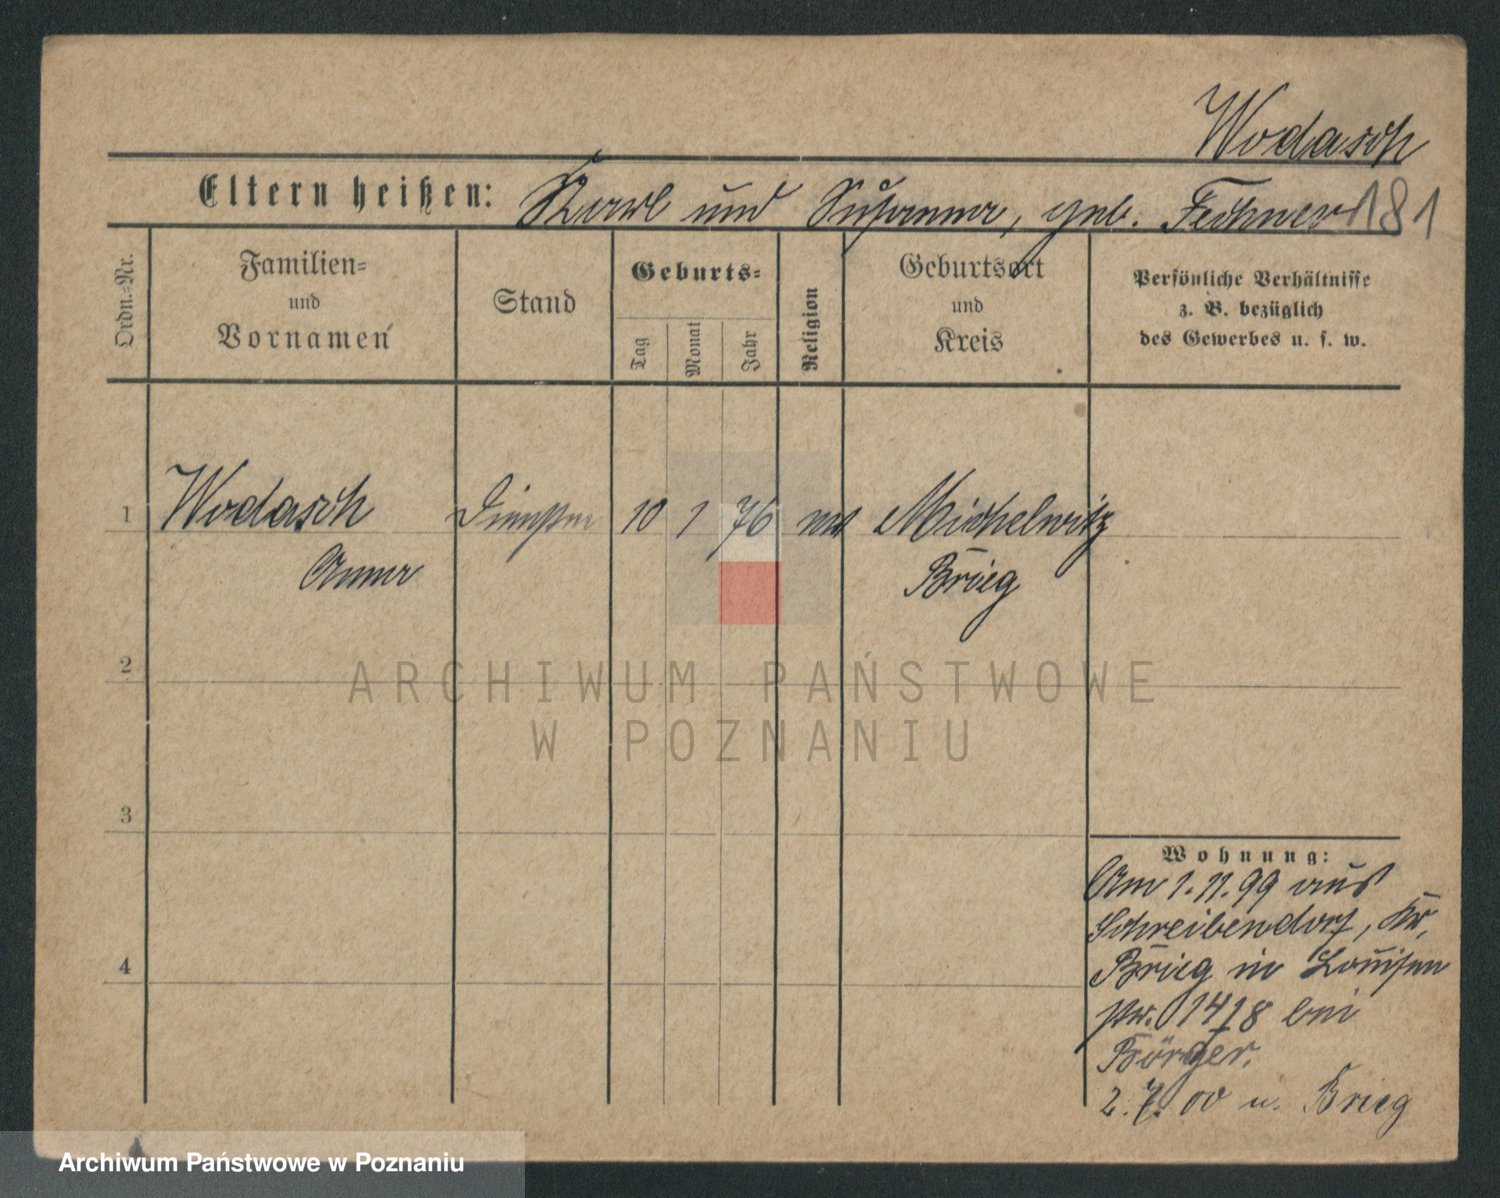 Wodasch
Eltern heißen: Karl und Susanna, geb. Fechner 181
Ordn.-Nr.
Familien-
und
Vornamen
Stand
Geburts-
Tag
Monat
Jahr
Religion
Geburtsort
und
Kreis
Persönliche Verhältnisse
z. B. bezüglich
des Gewerbes u. s. w.
1 Wodasch 10 1 76 Michelwitz
Anna Brieg
2
ARCHIWUM PAŃSTWOWE
W POZNANIU
3
4
Wohnung:
Am 1.11.99 aus
Schreibendorf, Kr.
Brieg in Louisen
str. 1418 bei
Börger.
2.7.00 n. Brieg
Archiwum Państwowe w Poznaniu